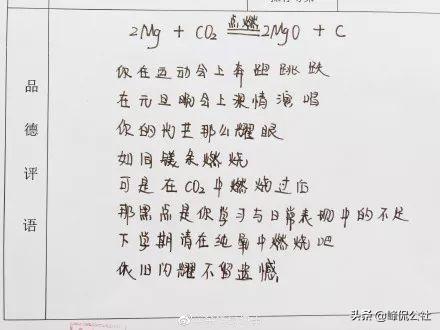 2Mg + CO₂ 点燃 2MgO + C
品德评语
你在运动会上奔跑跳跃
在元旦晚会上深情演唱
你的光芒那么耀眼
如同镁条燃烧
可是在CO₂中燃烧过后
那黑点是你学习与日常表现中的不足
下学期请在纯氧中燃烧吧
依旧闪耀不留遗憾
头条 @峰侃公社